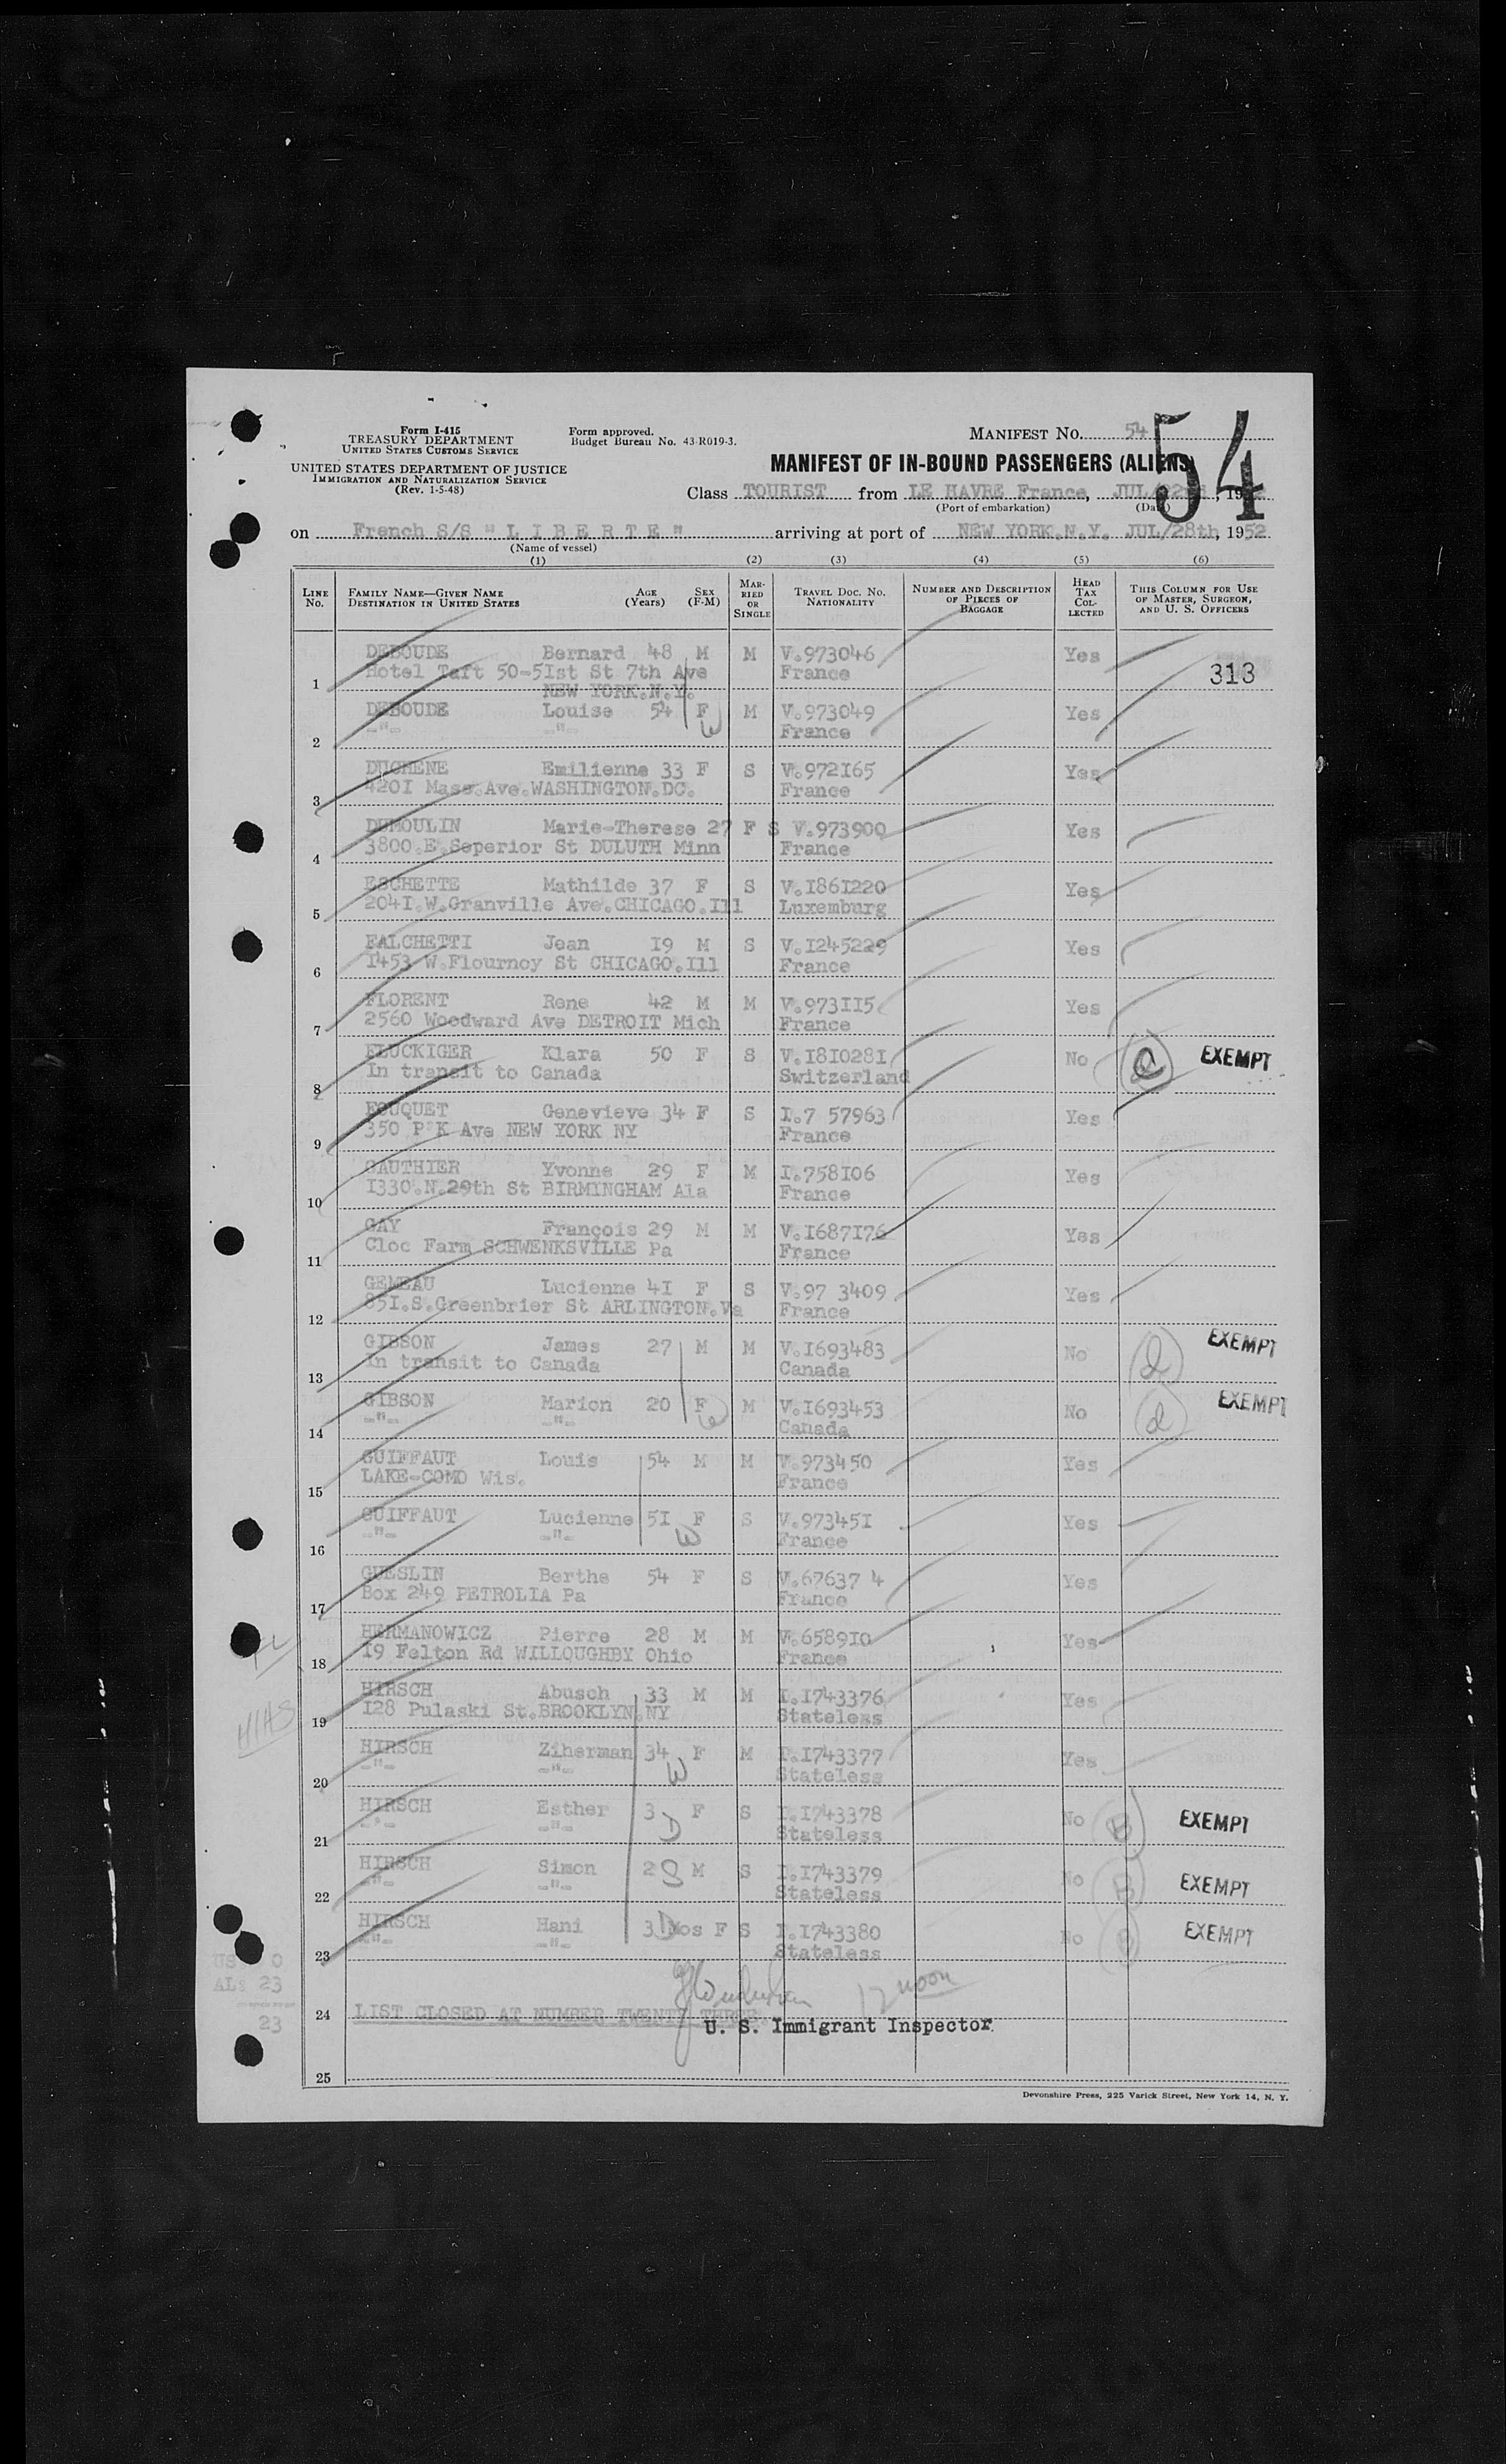 Form I-415
TREASURY DEPARTMENT
UNITED STATES CUSTOMS SERVICE
UNITED STATES DEPARTMENT OF JUSTICE
IMMIGRATION AND NATURALIZATION SERVICE
(Rev. 1-5-48)
Form approved.
Budget Bureau No. 43-R019-3.
MANIFEST No. 54
54
MANIFEST OF IN-BOUND PASSENGERS (ALIENS)
Class TOURIST from LE HAVRE France, JUL/22nd, 1952
(Port of embarkation) (Date)
on French S/S "LIBERTE" arriving at port of NEW YORK.N.Y. JUL/28th, 1952
(Name of vessel)
(1) (2) (3) (4) (5) (6)
LINE No. FAMILY NAME—GIVEN NAME DESTINATION IN UNITED STATES AGE (Years) SEX (F-M) MARRIED OR SINGLE TRAVEL DOC. NO. NATIONALITY NUMBER AND DESCRIPTION OF PIECES OF BAGGAGE HEAD TAX COLLECTED THIS COLUMN FOR USE OF MASTER, SURGEON, AND U. S. OFFICERS
DEBOUDE Bernard 48 M M V.973046 Yes
Hotel Taft 50-5Ist St 7th Ave France 313
1 NEW YORK.N.Y.
DEBOUDE Louise 54 F M V.973049 Yes
W
2 -"- -"- France
DUCHENE Emilienne 33 F S V.972I65 Yes
3 420I Mass.Ave.WASHINGTON.DC. France
DUMOULIN Marie-Therese 27 F S V.973900 Yes
4 3800.E.Seperior St DULUTH Minn France
ESCHETTE Mathilde 37 F S V.I86I220 Yes
5 204I.W.Granville Ave.CHICAGO.Ill Luxemburg
FALCHETTI Jean I9 M S V.I245229 Yes
6 I453 W.Flournoy St CHICAGO.Ill France
FLORENT Rene 42 M M V.973II5 Yes
7 2560 Woodward Ave DETROIT Mich France
FLUCKIGER Klara 50 F S V.I8I028I No EXEMPT
8 In transit to Canada Switzerland
FOUQUET Genevieve 34 F S I.7 57963 Yes
9 350 P K Ave NEW YORK NY France
GAUTHIER Yvonne 29 F M I.758I06 Yes
10 I330.N.29th St BIRMINGHAM Ala France
GAY François 29 M M V.I687I76 Yes
11 Cloc Farm SCHWENKSVILLE Pa France
GEMEAU Lucienne 4I F S V.97 3409 Yes
12 85I.S.Greenbrier St ARLINGTON.Va France
GIBSON James 27 M M V.I693483 No d EXEMPT
13 In transit to Canada Canada
GIBSON Marion 20 F M V.I693453 No d EXEMPT
W
14 -"- -"- Canada
GUIFFAUT Louis 54 M M V.973450 Yes
15 LAKE-COMO Wis. France
GUIFFAUT Lucienne 5I F S V.97345I Yes
W
16 -"- -"- France
GUESLIN Berthe 54 F S V.67637 4 Yes
17 Box 249 PETROLIA Pa France
HERMANOWICZ Pierre 28 M M V.6589I0 Yes
18 I9 Felton Rd WILLOUGHBY Ohio France
HIRSCH Abusch 33 M M I.I743376 Yes
HIAS
19 I28 Pulaski St.BROOKLYN.NY Stateless
HIRSCH Ziherman 34 F M I.I743377 Yes
W
20 -"- -"- Stateless
HIRSCH Esther 3 F S I.I743378 No B EXEMPT
D
21 -"- -"- Stateless
HIRSCH Simon 2 S M S I.I743379 No B EXEMPT
22 -"- -"- Stateless
HIRSCH Hani 3 D Mos F S I.I743380 No B EXEMPT
23 -"- -"- Stateless
US: 0
AL: 23
23
12 noon
24 LIST CLOSED AT NUMBER TWENTY THREE.
U. S. Immigrant Inspector
25
Devonshire Press, 225 Varick Street, New York 14, N. Y.